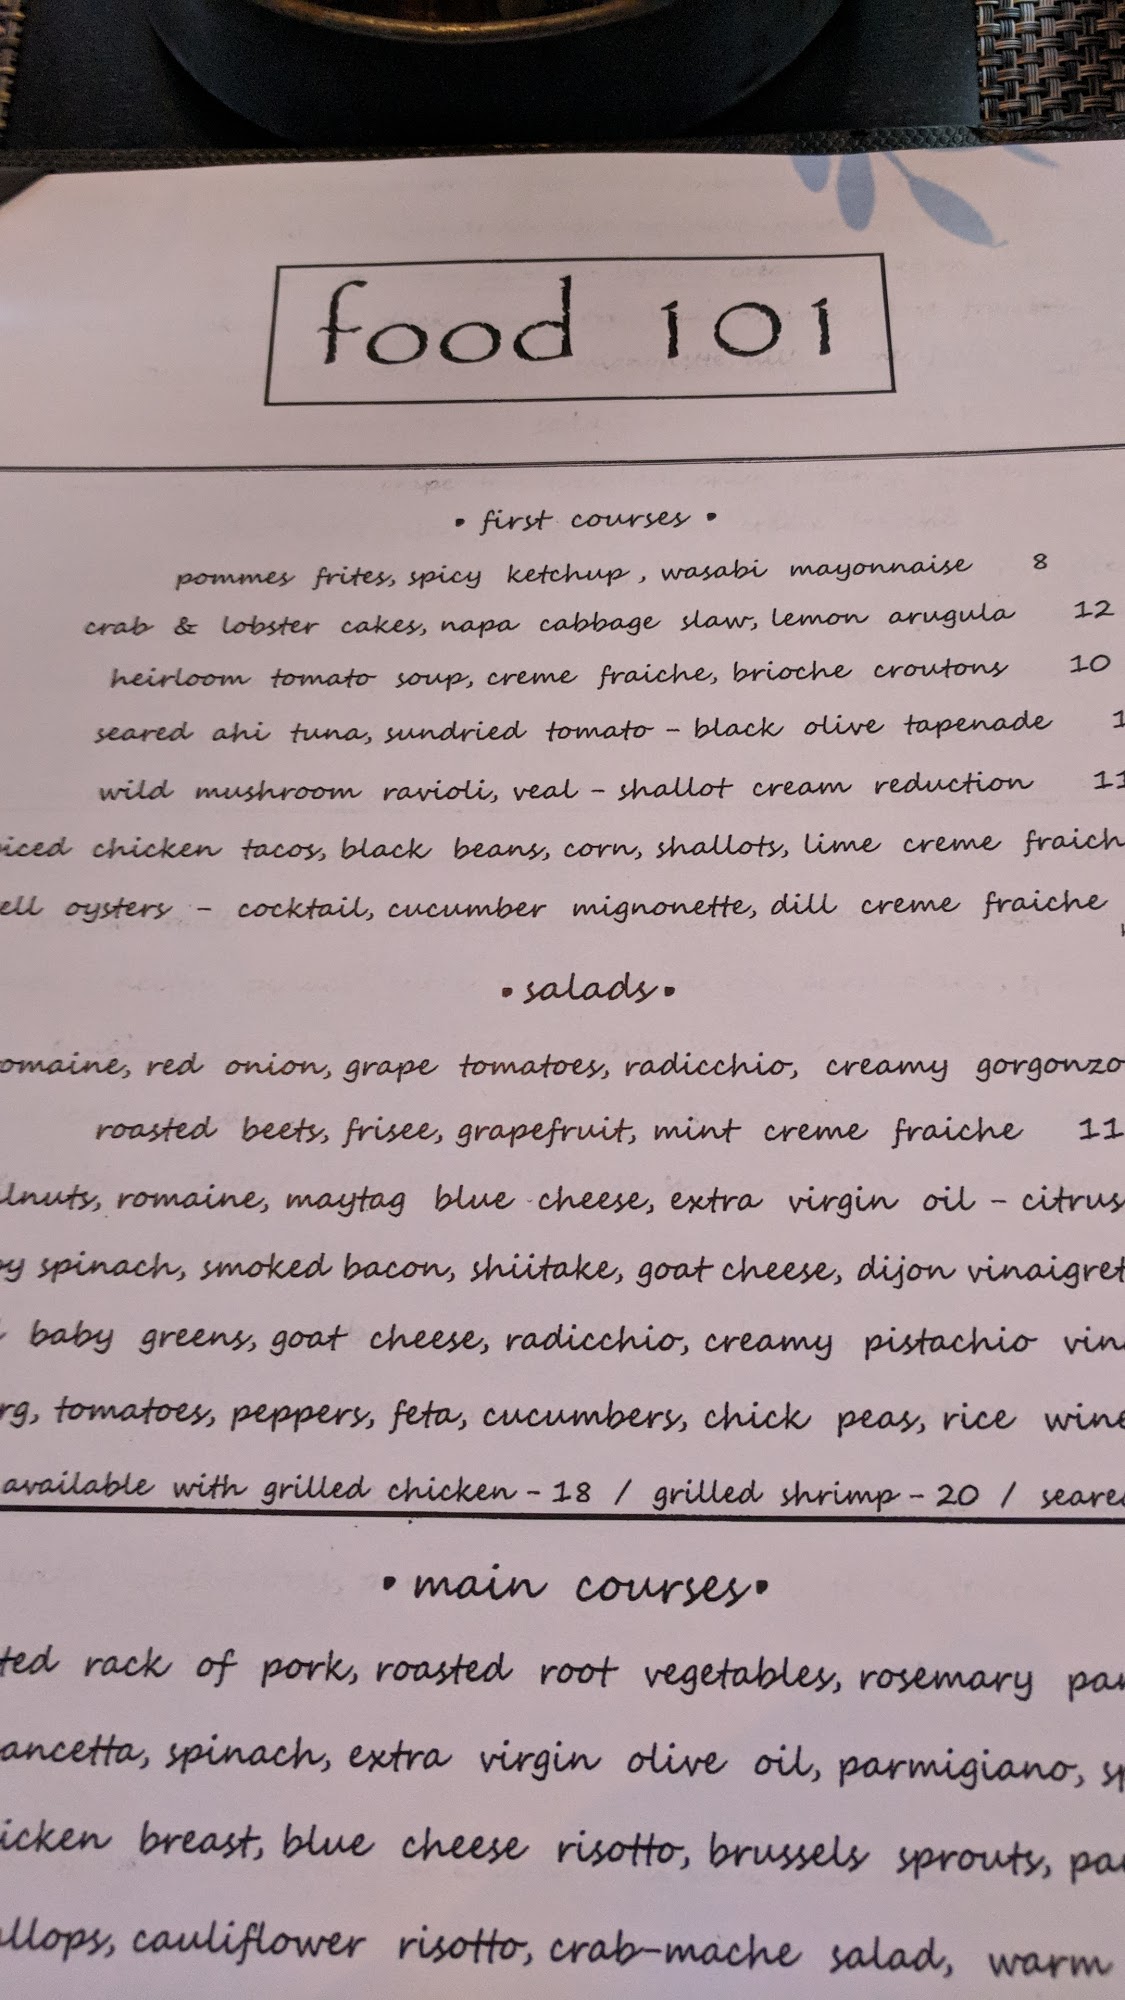 food 101
• first courses •
pommes frites, spicy ketchup, wasabi mayonnaise 8
crab & lobster cakes, napa cabbage slaw, lemon arugula 12
heirloom tomato soup, creme fraiche, brioche croutons 10
seared ahi tuna, sundried tomato - black olive tapenade
wild mushroom ravioli, veal - shallot cream reduction 11
chicken tacos, black beans, corn, shallots, lime creme fraich
oysters - cocktail, cucumber mignonette, dill creme fraiche
• salads •
omaine, red onion, grape tomatoes, radicchio, creamy gorgonzo
roasted beets, frisee, grapefruit, mint creme fraiche 11
lnuts, romaine, maytag blue cheese, extra virgin oil - citrus
by spinach, smoked bacon, shiitake, goat cheese, dijon vinaigret
baby greens, goat cheese, radicchio, creamy pistachio vin
rg, tomatoes, peppers, feta, cucumbers, chick peas, rice wine
available with grilled chicken - 18 / grilled shrimp - 20 / seared
• main courses •
ted rack of pork, roasted root vegetables, rosemary pan
ancetta, spinach, extra virgin olive oil, parmigiano, sp
icken breast, blue cheese risotto, brussels sprouts, pa
allops, cauliflower risotto, crab-mache salad, warm